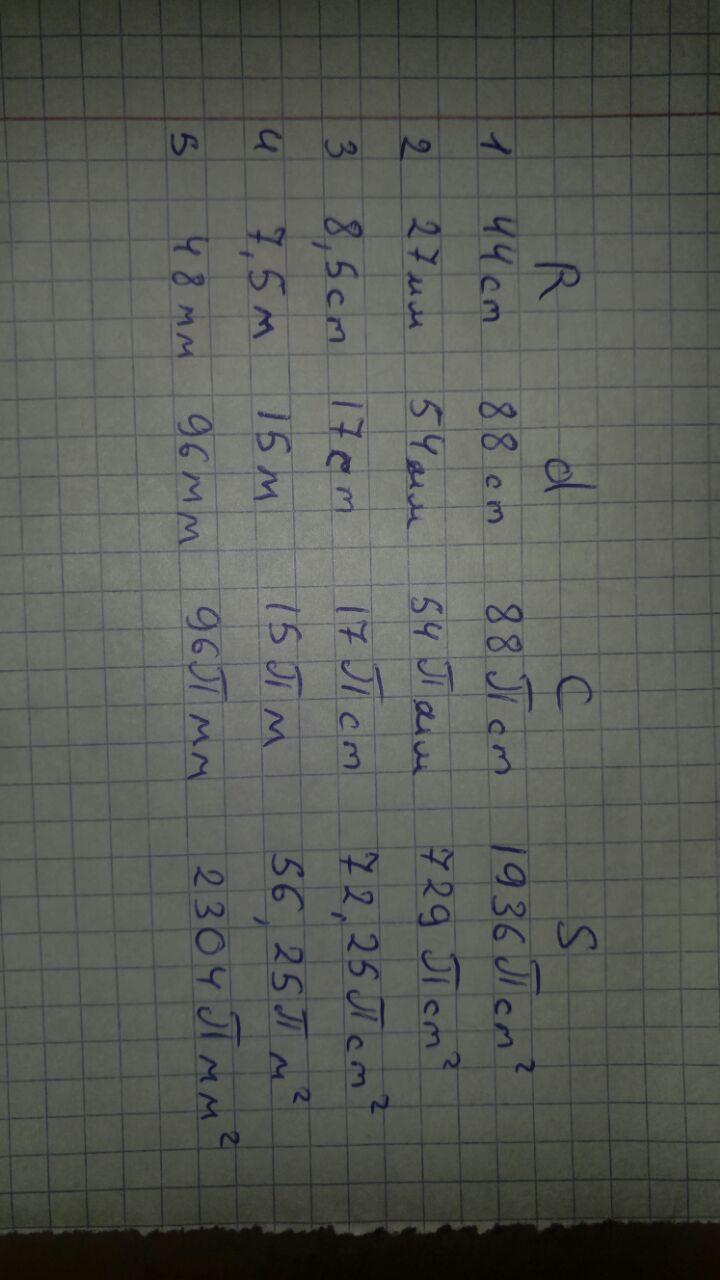 R d C S
1 44cm 88cm 88πcm 1936πcm²
2 27мм 54мм 54πмм 729πcm²
3 8,5cm 17cm 17πcm 72,25πcm²
4 7,5м 15м 15πм 56,25πм²
5 48мм 96мм 96πмм 2304πмм²